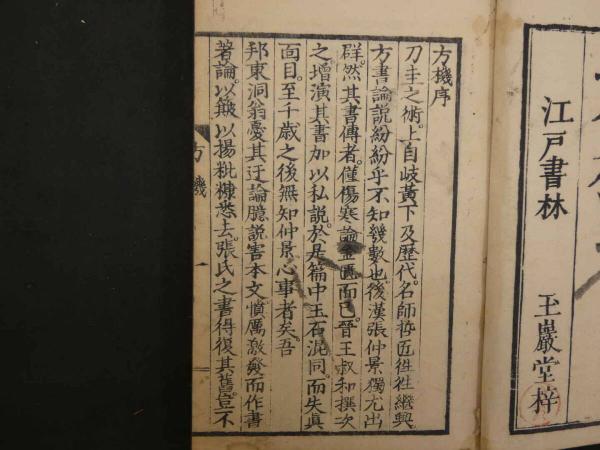 江戸書林
玉巖堂梓
方機序
刀圭之術。上自岐黃下及歷代。名師哲匠徃徃繼興。
方書論說紛紛乎不知幾數也。後漢張仲景獨尤出
群。然其書傳者。僅傷寒論金匱而已。晉王叔和撰次
之增演其書加以私說。於是篇中玉石混同。而失眞
面目。至千歲之後無知仲景心事者矣。吾
邦東洞翁憂其迂論臆說害本文。憤厲激發而作書
著論。以簸以揚粃糠悉去。張氏之書得復其舊。豈不
方機
一